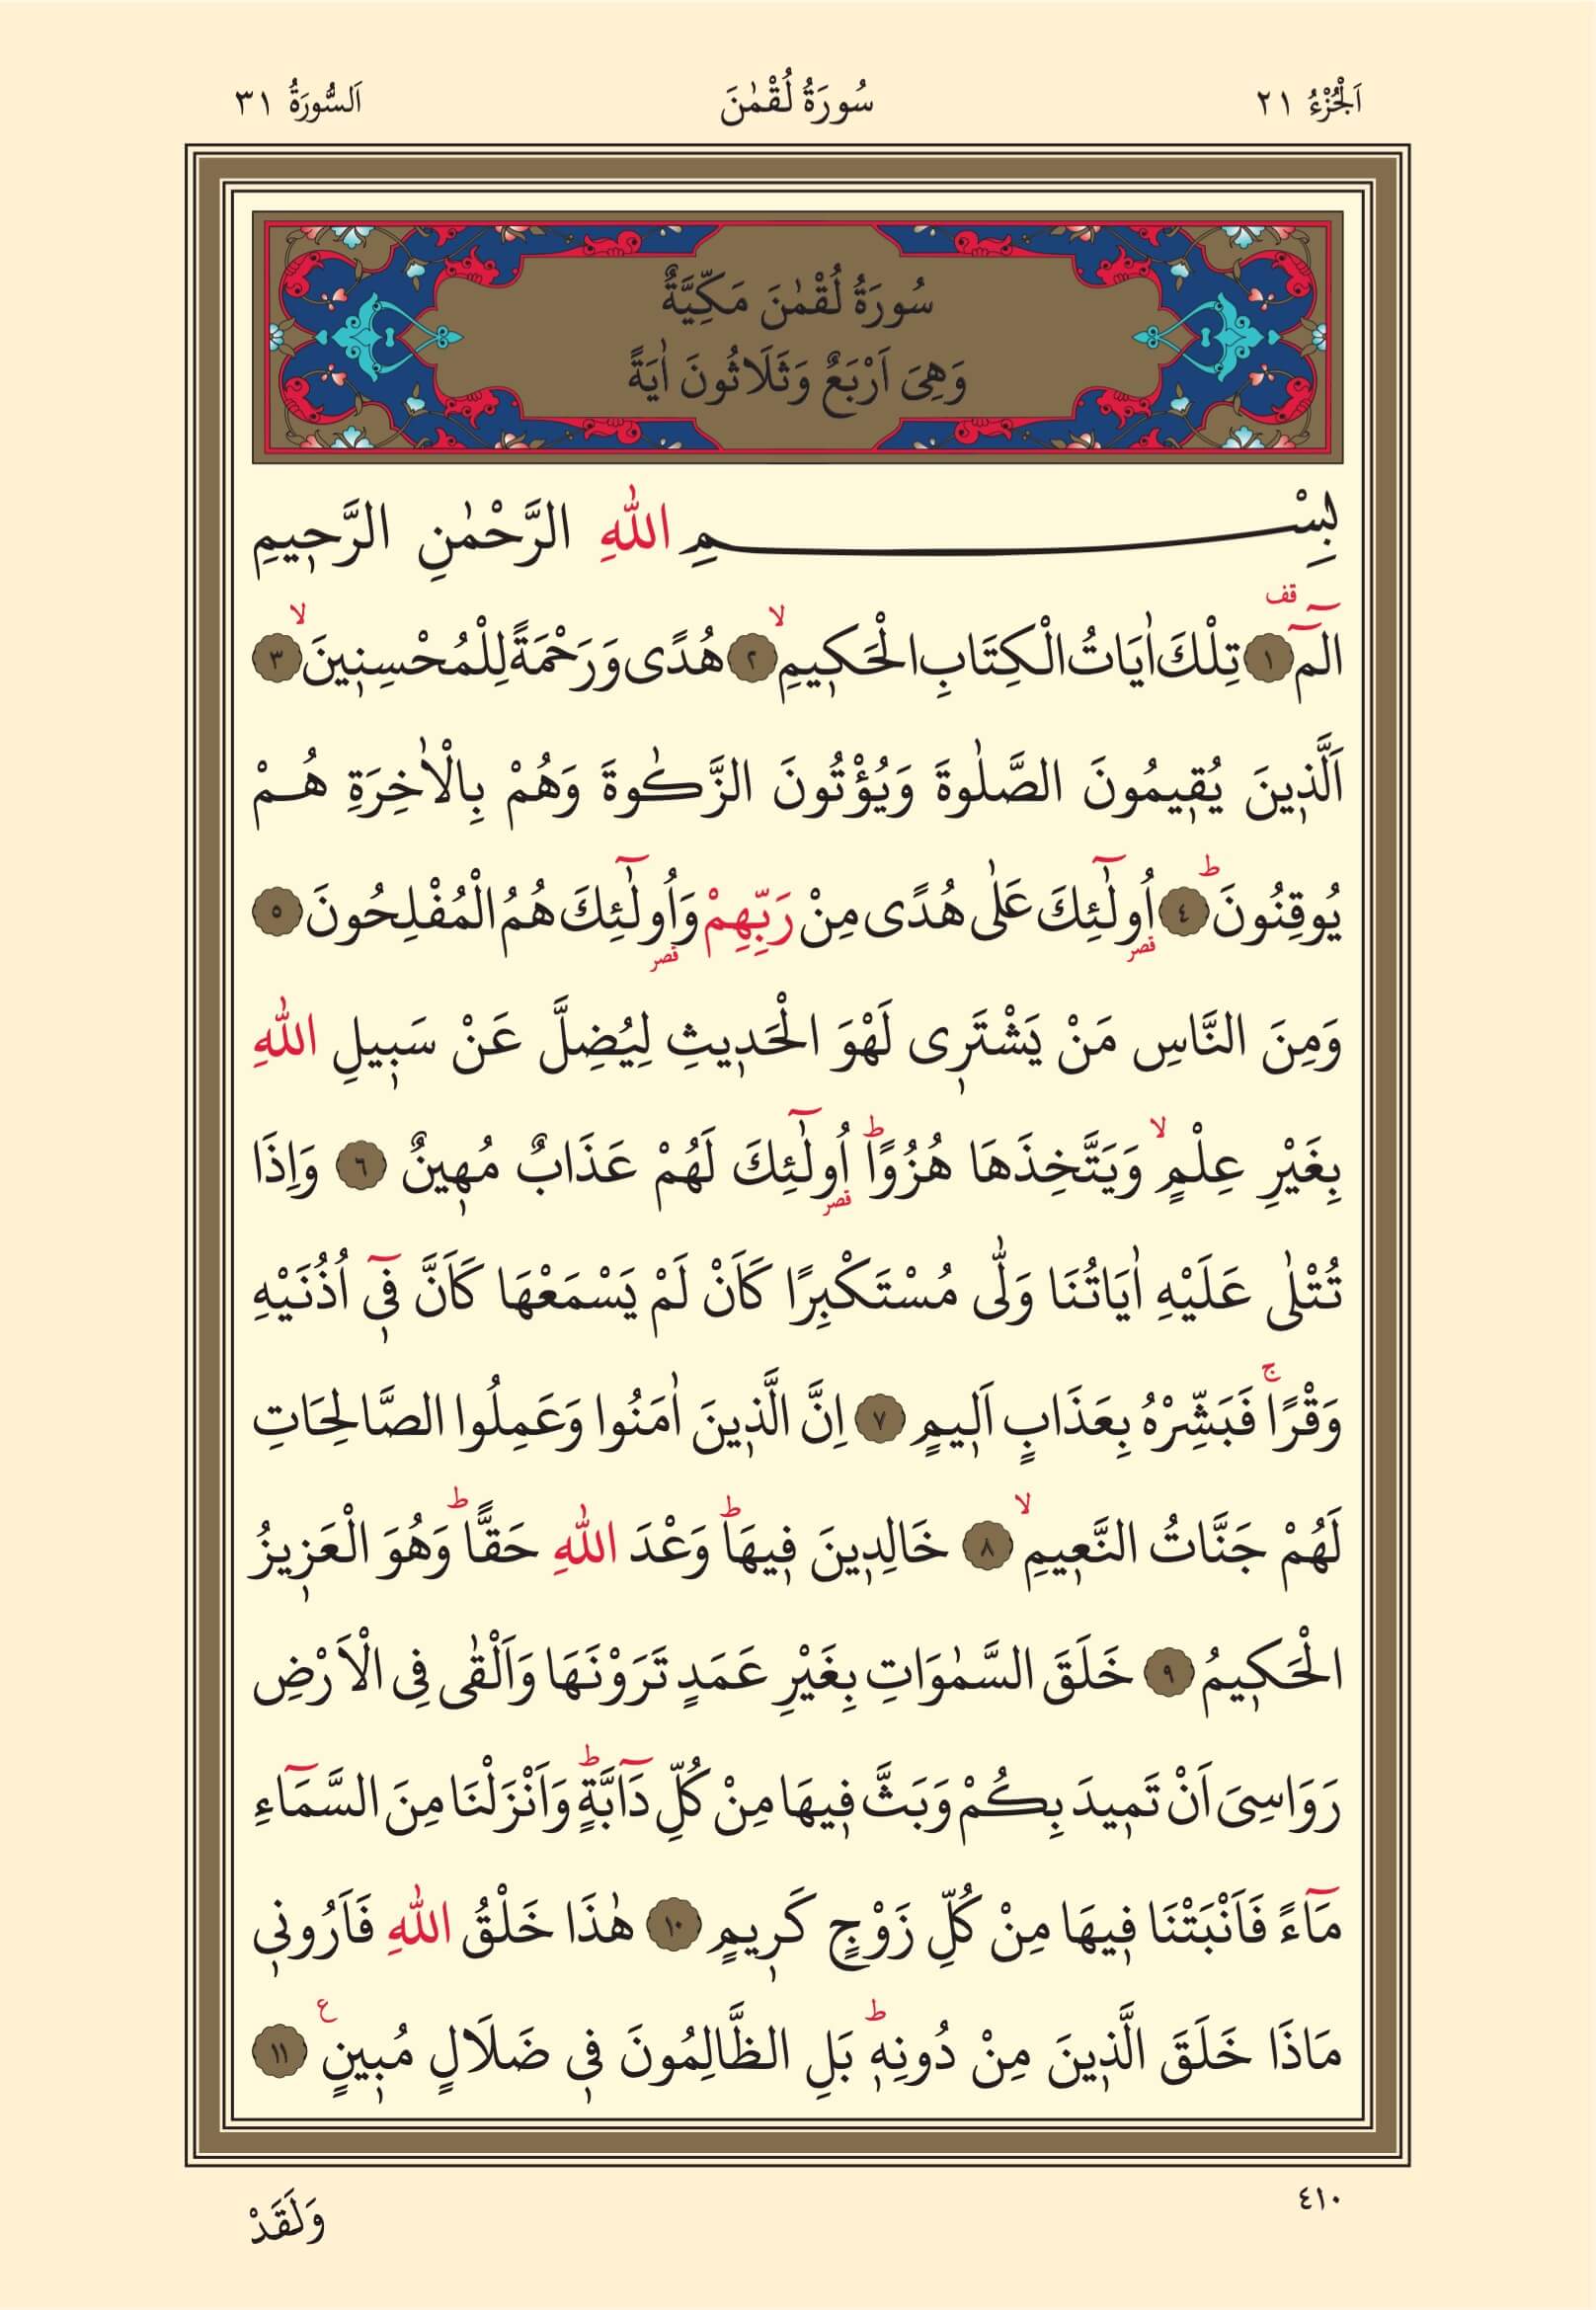 اَلْجُزْءُ ٢١
سُورَةُ لُقْمٰنَ
اَلسُّورَةُ ٣١
سُورَةُ لُقْمٰنَ مَكِّيَّةٌ
وَهِىَ اَرْبَعٌ وَثَلَاثُونَ اٰيَةً
بِسْمِ اللّٰهِ الرَّحْمٰنِ الرَّح۪يمِ
الٓمٓ ۗ ﴿١﴾ تِلْكَ اٰيَاتُ الْكِتَابِ الْحَك۪يمِۙ ﴿٢﴾ هُدًى وَرَحْمَةً لِلْمُحْسِن۪ينَۙ ﴿٣﴾
اَلَّذ۪ينَ يُق۪يمُونَ الصَّلٰوةَ وَيُؤْتُونَ الزَّكٰوةَ وَهُمْ بِالْاٰخِرَةِ هُمْ
يُوقِنُونَۜ ﴿٤﴾ اُو۬لٰٓئِكَ عَلٰى هُدًى مِنْ رَبِّهِمْ وَاُو۬لٰٓئِكَ هُمُ الْمُفْلِحُونَ ﴿٥﴾
وَمِنَ النَّاسِ مَنْ يَشْتَر۪ى لَهْوَ الْحَد۪يثِ لِيُضِلَّ عَنْ سَب۪يلِ اللّٰهِ
بِغَيْرِ عِلْمٍۙ وَيَتَّخِذَهَا هُزُوًاۜ اُو۬لٰٓئِكَ لَهُمْ عَذَابٌ مُه۪ينٌ ﴿٦﴾ وَاِذَا
تُتْلٰى عَلَيْهِ اٰيَاتُنَا وَلّٰى مُسْتَكْبِرًا كَاَنْ لَمْ يَسْمَعْهَا كَاَنَّ ف۪ٓى اُذُنَيْهِ
وَقْرًاۚ فَبَشِّرْهُ بِعَذَابٍ اَل۪يمٍ ﴿٧﴾ اِنَّ الَّذ۪ينَ اٰمَنُوا وَعَمِلُوا الصَّالِحَاتِ
لَهُمْ جَنَّاتُ النَّع۪يمِۙ ﴿٨﴾ خَالِد۪ينَ ف۪يهَاۜ وَعْدَ اللّٰهِ حَقًّاۜ وَهُوَ الْعَز۪يزُ
الْحَك۪يمُ ﴿٩﴾ خَلَقَ السَّمٰوَاتِ بِغَيْرِ عَمَدٍ تَرَوْنَهَا وَاَلْقٰى فِى الْاَرْضِ
رَوَاسِىَ اَنْ تَم۪يدَ بِكُمْ وَبَثَّ ف۪يهَا مِنْ كُلِّ دَٓابَّةٍۜ وَاَنْزَلْنَا مِنَ السَّمَٓاءِ
مَٓاءً فَاَنْبَتْنَا ف۪يهَا مِنْ كُلِّ زَوْجٍ كَر۪يمٍ ﴿١٠﴾ هٰذَا خَلْقُ اللّٰهِ فَاَرُون۪ى
مَاذَا خَلَقَ الَّذ۪ينَ مِنْ دُونِه۪ۜ بَلِ الظَّالِمُونَ ف۪ى ضَلَالٍ مُب۪ينٍ ع ﴿١١﴾
٤١٠
وَلَقَدْ